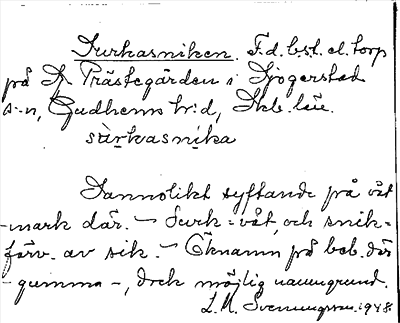 Surkasniken. F.d. bst. el. torp
på Prästegården i Sjogerstad
s-n, Gudhems h:d, Skb. län.
sùrkasnika
Sannolikt syftande på våt
-mark där. – Surk = våt, och snik =
förv. av sik. – Öknamn på beb. där
- gumma -, dock möjlig namngrund.
L. M. Svenungsson. 1948.